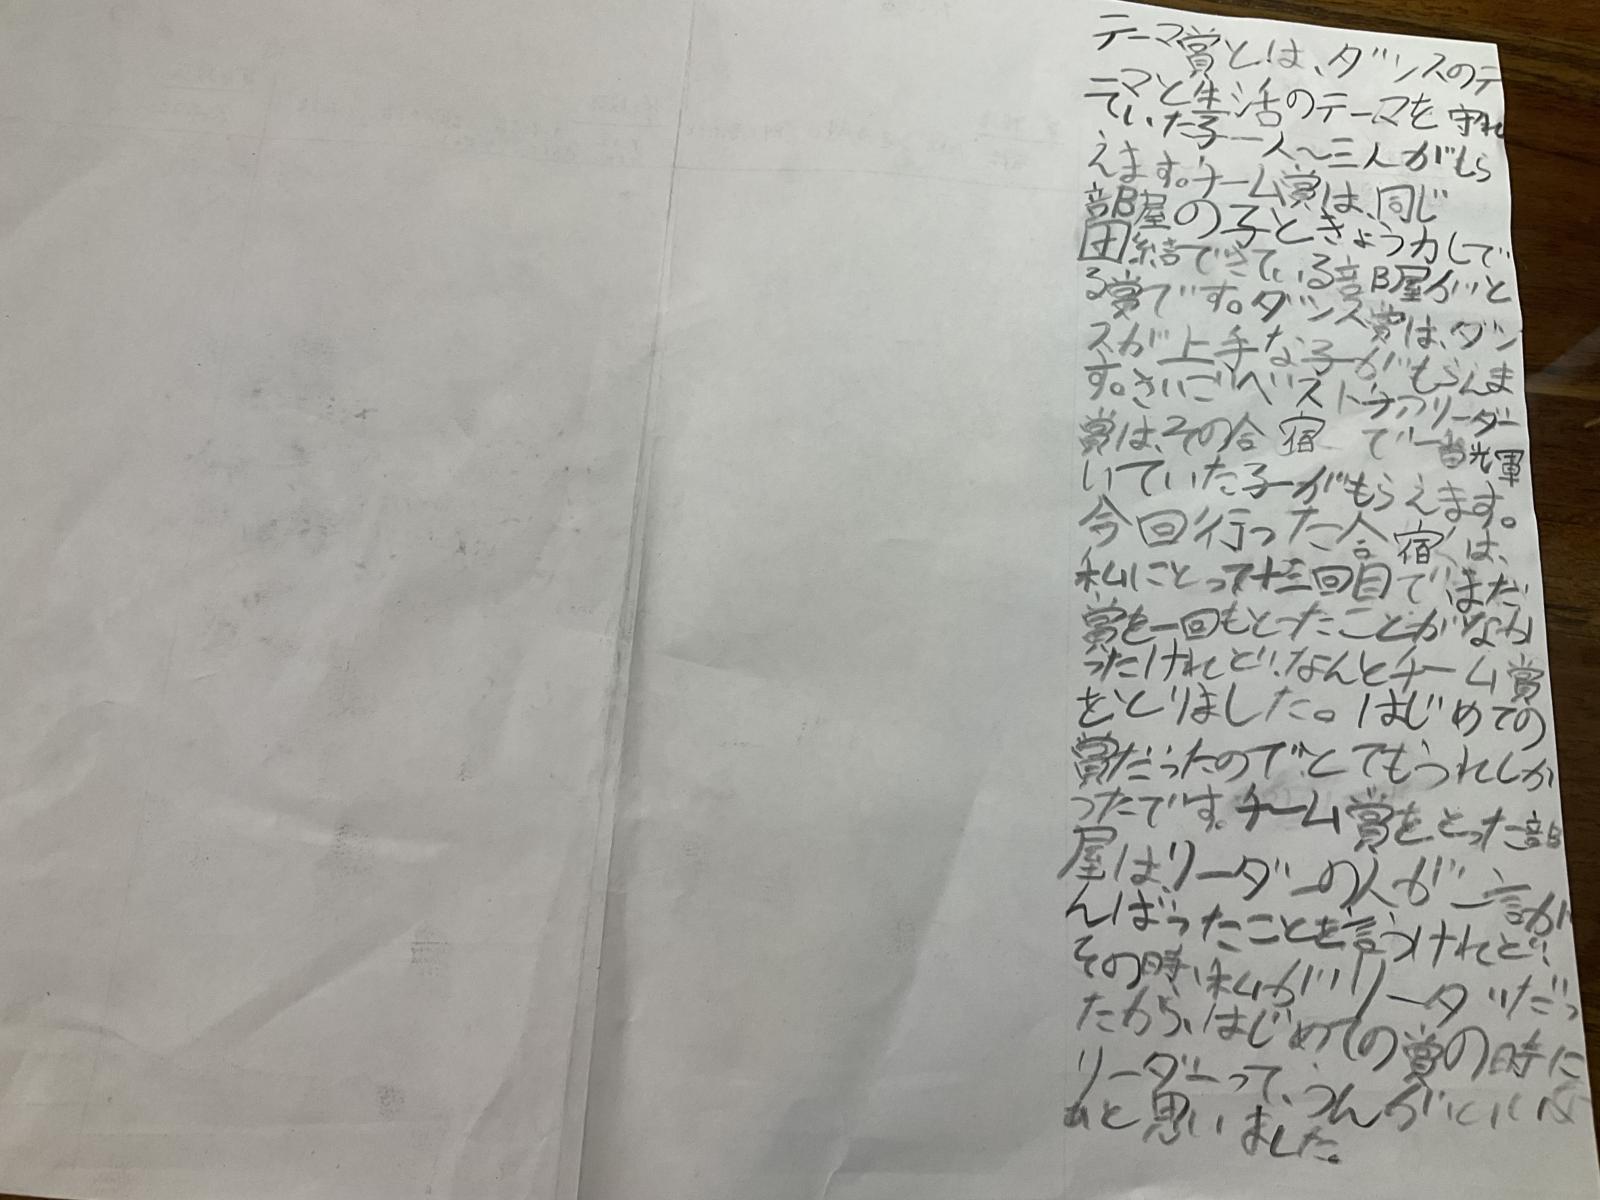 テーマ賞とは、ダンスのテ
ーマと生活のテーマを守れ
ていた子一人〜三人がもら
えます。チーム賞は、同じ
部屋の子ときょう力して
団結できている部屋がと
る賞です。ダンス賞は、ダン
スが上手な子がもらえま
す。さいごベストチアリーダー
賞は、その合宿で一番輝
いていた子がもらえます。
今回行った合宿は、
私にとって十三回目で、まだ
賞を一回もとったことがなか
ったけれど、なんとチーム賞
をとりました。はじめての
賞だったのでとてもうれしか
ったです。チーム賞をとった部
屋はリーダーの人が一言が
んばったことを言うけれど、
その時、私がリーダーだっ
たから、はじめての賞の時に
リーダーって、うんがいいな
と思いました。